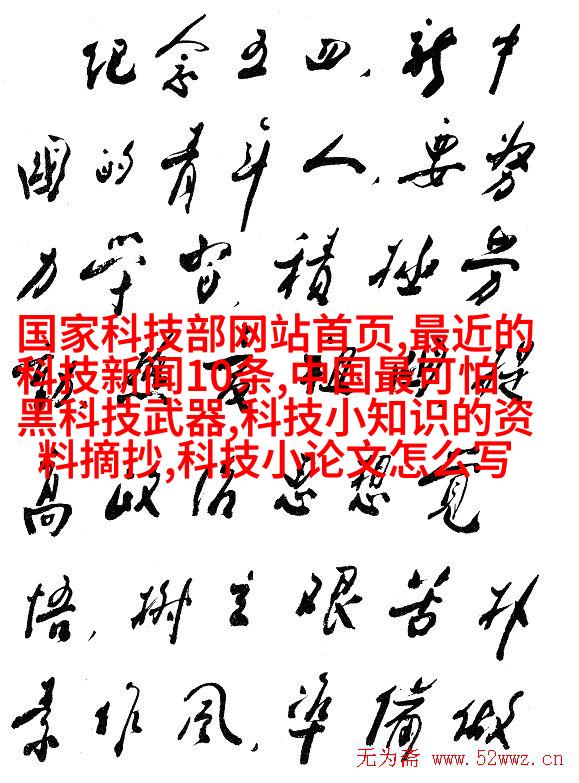 纪念五四,新中
國的青年人,要努
力学習,積極劳
国家科技部网站首页,最近的
科技新闻10条,中国最可怕
黑科技武器,科技小知识的资
料摘抄,科技小论文怎么写
高政治思想覚
悟,樹立艰苦朴
素作风,準備做
无为斋 www.52wwz.cn